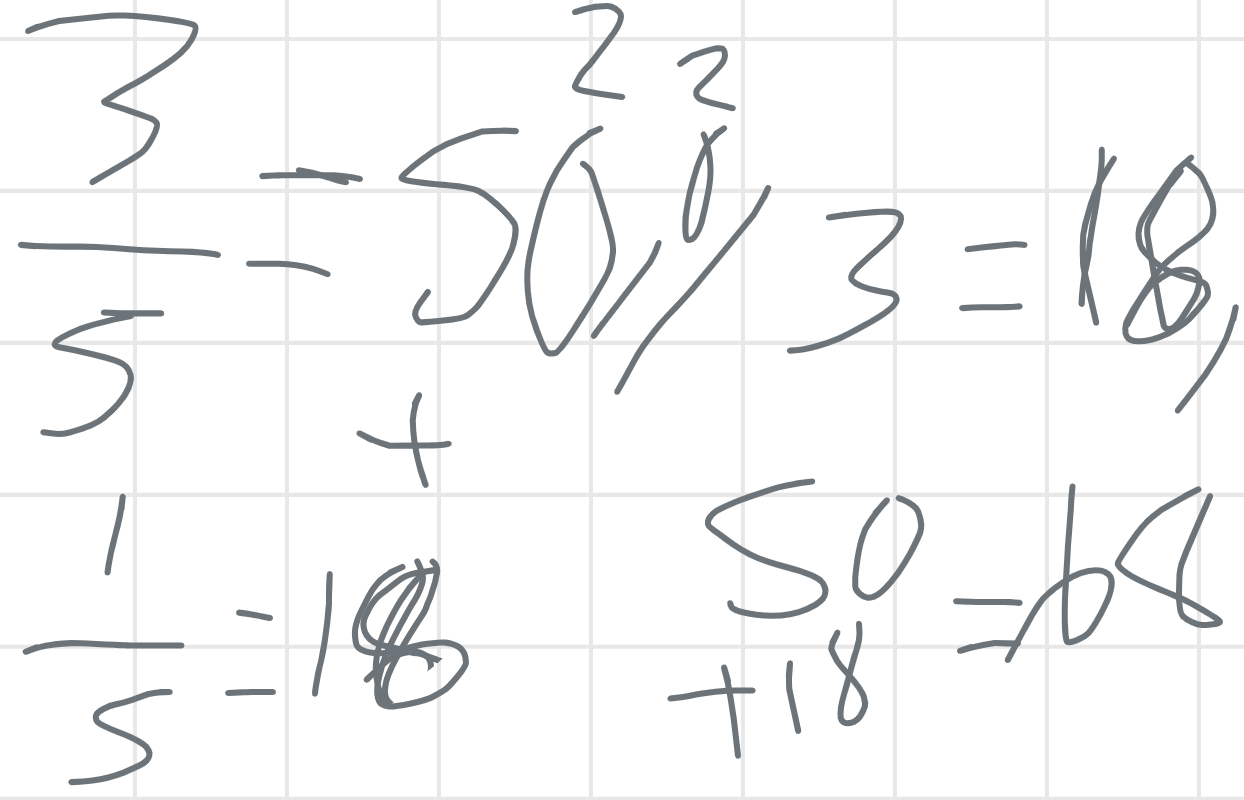 2 2
3/5 = 50,0/3 = 18,
+
1/5 = 18
50
+18 = 68